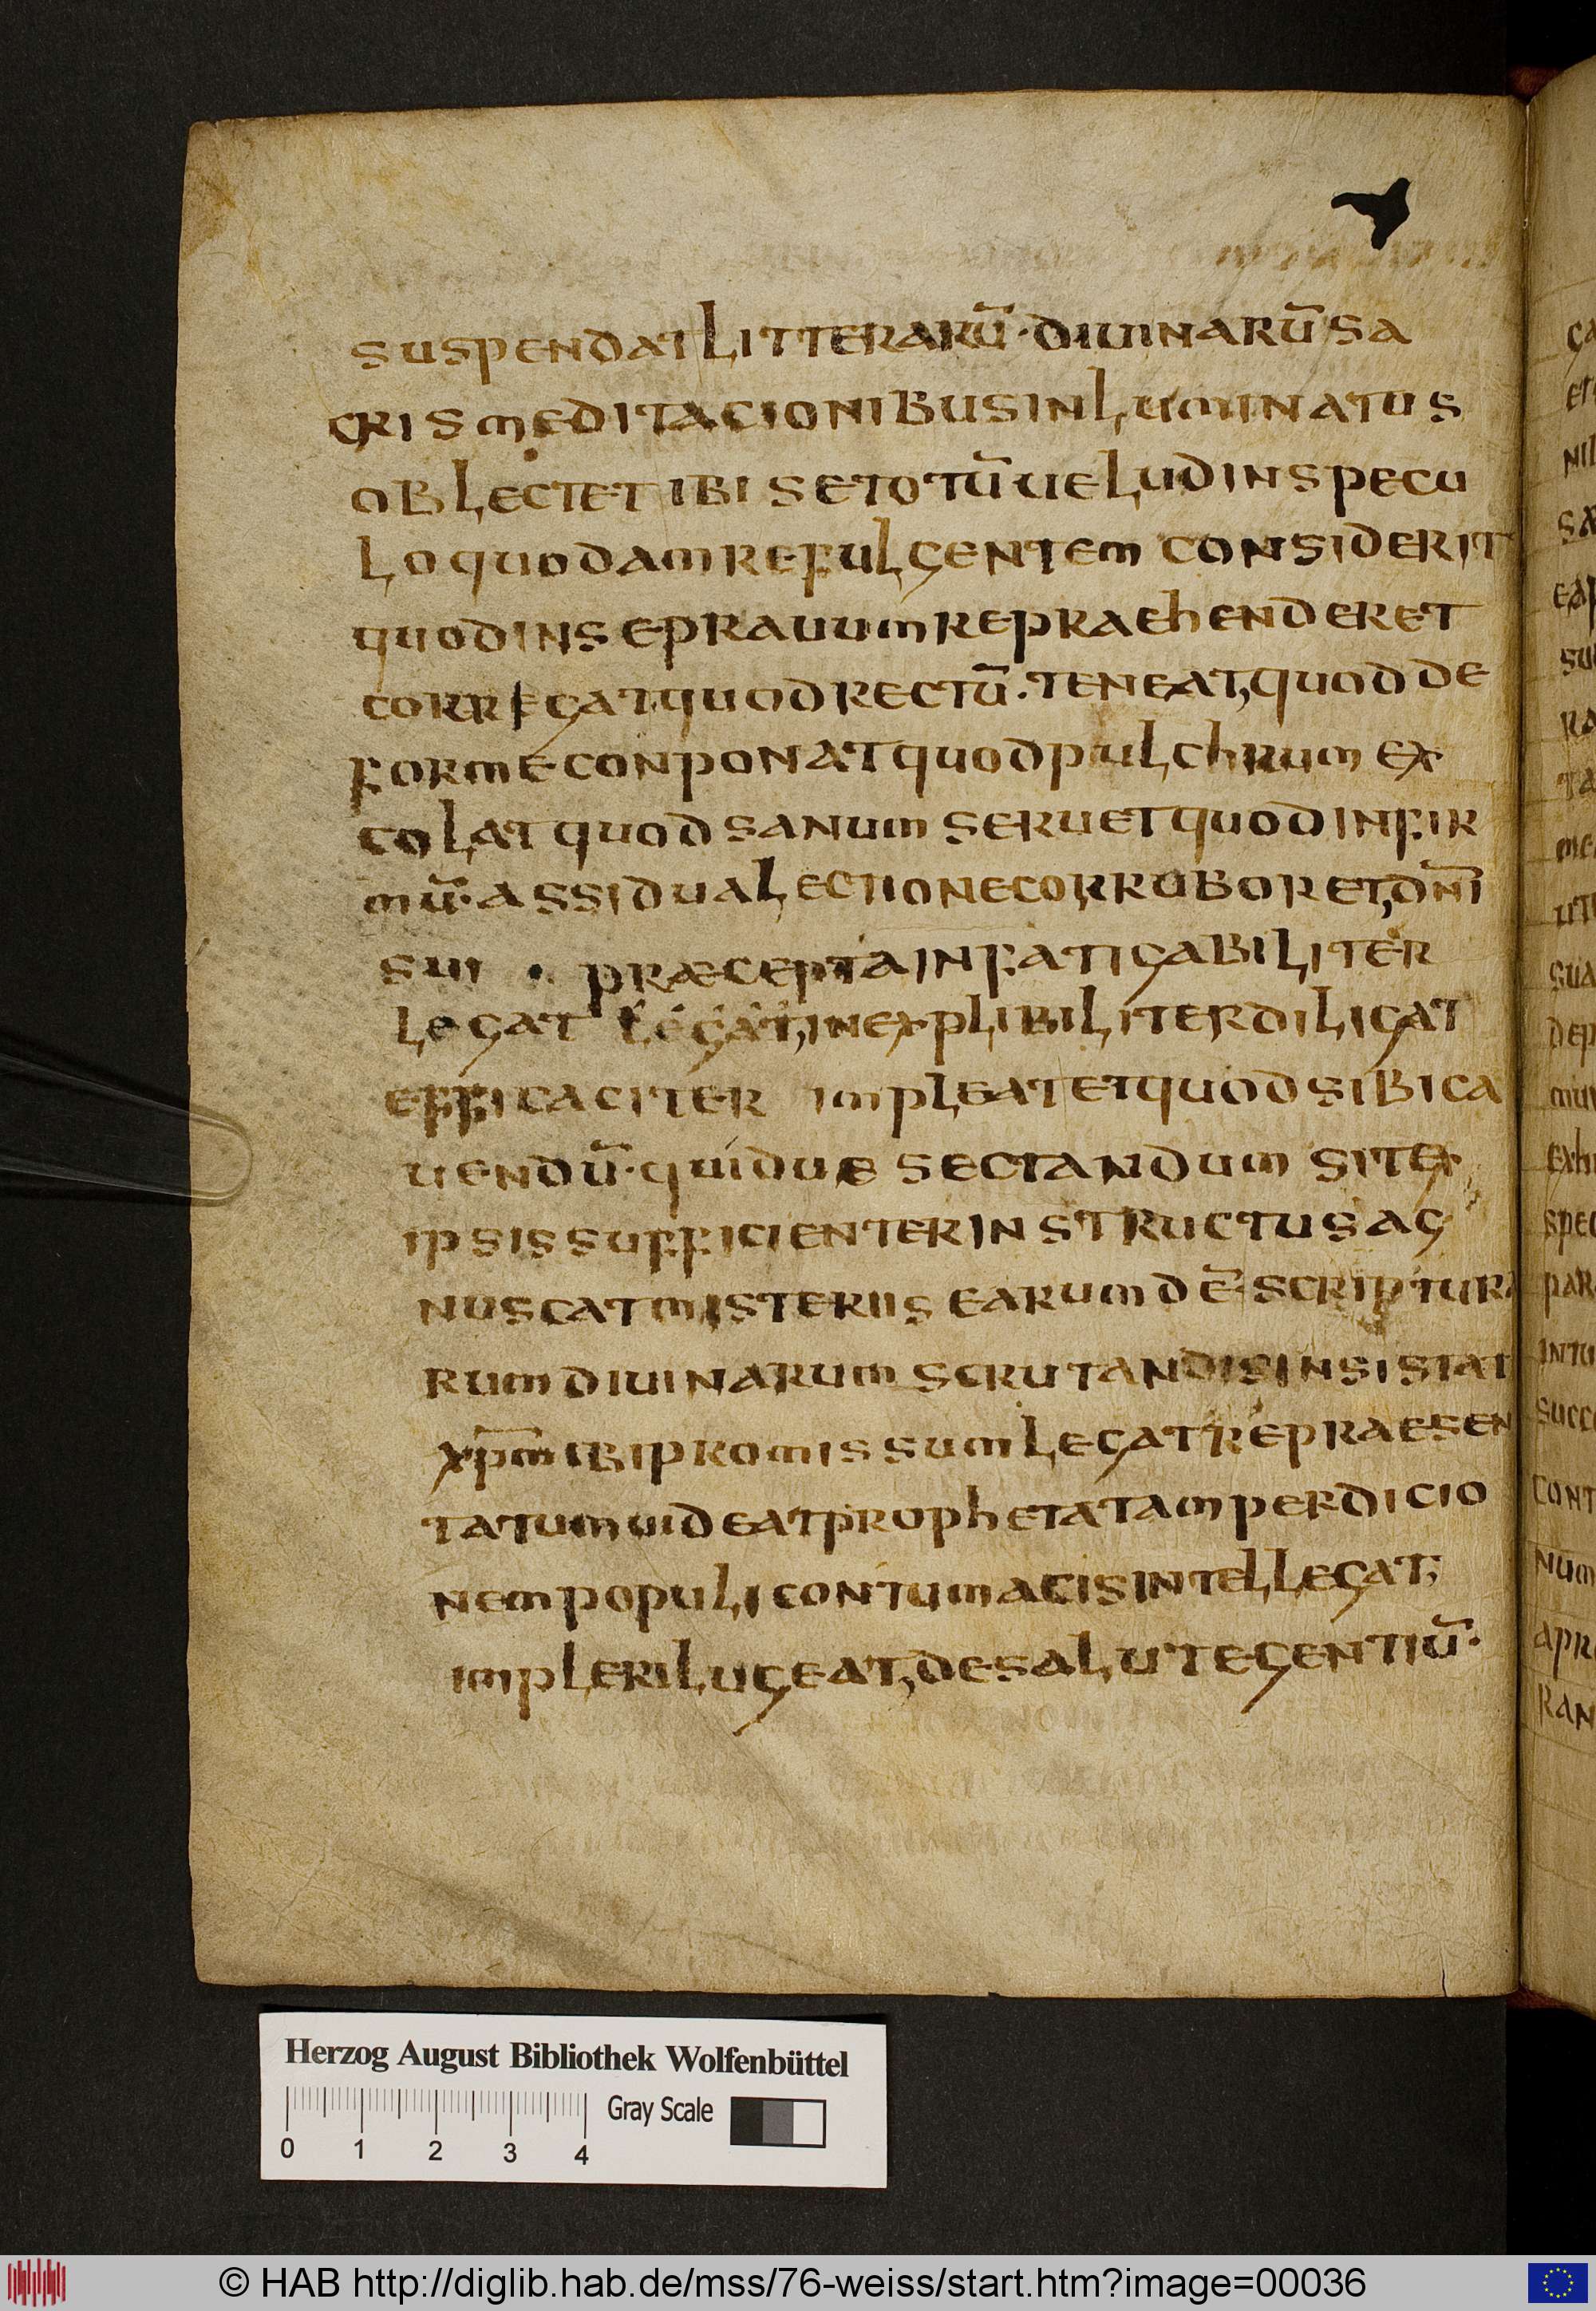 suspendat litterarū · diuinarū sa
gris meditacionibus inluminatus
oblectet ibi se totū uelud in specu
lo quodam refulgentem considerit
quod in se prauum repraehenderet
corregat quod rectū · teneat, quod de
forme conponat quod pulchrum ex
colat quod sanum seruet quod infir
mū · assidua lectione corruboret, dn̄i
sui · praecepta infatigabiliter
legat legat, inexplibiliter diligat
efficaciter impleat et quod sibi ca
uendū · quidue sectandum sit ex
ipsis sufficienter instructus ag
nuscat misteriis earumdē scriptura
rum diuinarum scrutandis insistat
xp̄m ibi promissum legat repraesen
tatum uideat prophetatam perdicio
nem populi contumacis intellegat,
impleri lugeat, de salute gentiū ·
Herzog August Bibliothek Wolfenbüttel
Gray Scale
0 1 2 3 4
© HAB http://diglib.hab.de/mss/76-weiss/start.htm?image=00036